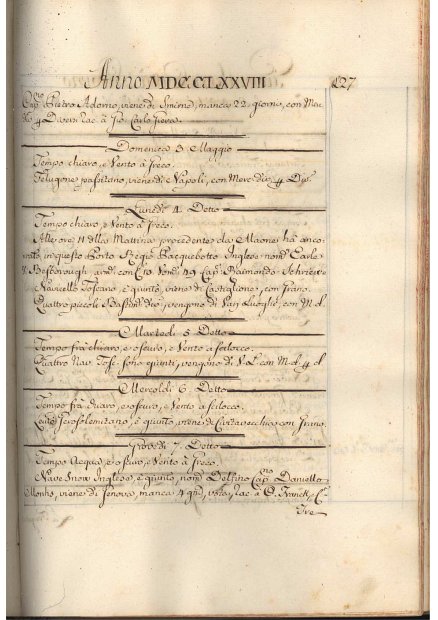 Anno MDCCLXXVIII 127
Capno Pietro Adorno, viene di Smirne, manca 22 giorni, con Mer
a Carlo
Domenica 3 Maggio
Tempo chiaro, e Vento à Greco.
Felugone pastirano, viene di Napoli, con Merc
Lunedì 4 Detto
Tempo chiaro, e Vento à Greco.
Alle ore 11 della Mattina procedente da Maone hà anco
rato in questo Porto Regio Pacquebotto Inglese nomto Earle
Besborough, armto con Cap: Raimondo
Navicello Toscano, è giunto, viene di Castiglione, con Grano.
Quattro piccoli Bastim: vengono di Varj Luoghi, con M. d.
Martedì 5 Detto
Tempo frà chiaro, e oscuro, e Vento à scilocco.
Quattro Nav: Tose: sono giunti, vengono di V. L. con M. d.
Mercoldì 6 Detto
Tempo frà chiaro, e oscuro, e Vento à scilocco.
Leuto Gerosolemitano, è giunto, viene di Civitavecchia con Grano.
Giovedì 7 Detto
Tempo Acqua, e oscuro, e Vento à Greco.
Nave Snow Inglese, è giunto, nomto Delfino Capno Daniello
viene di Genova, manca 4 à